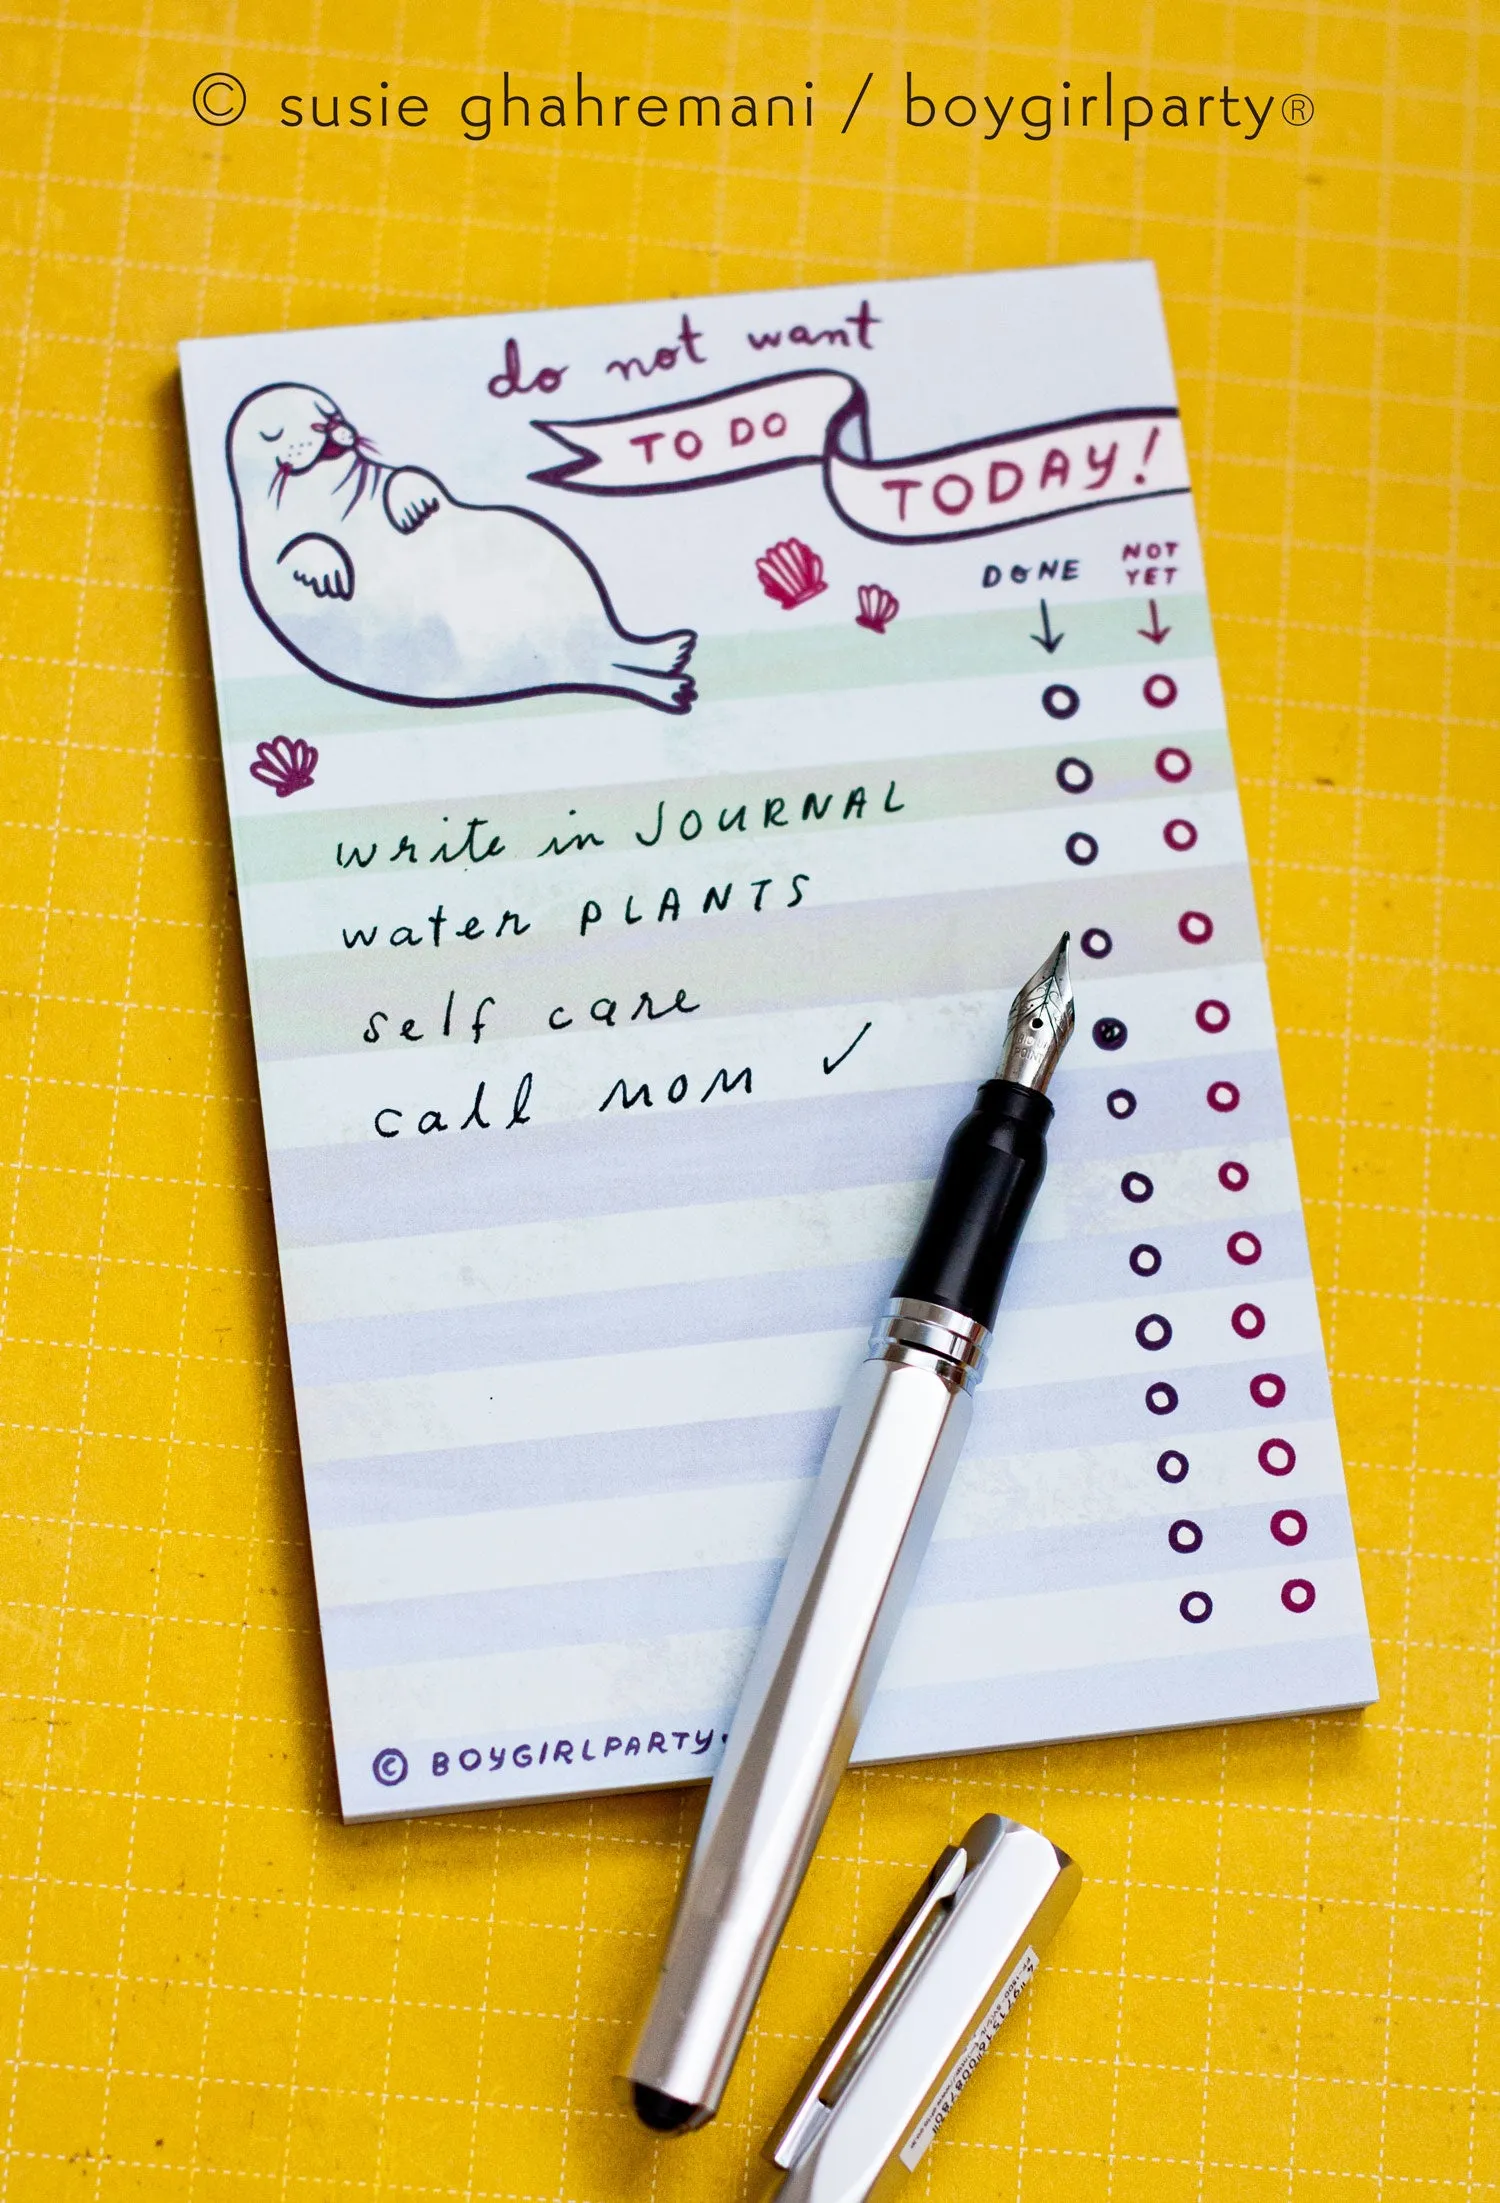 © susie ghahremani / boygirlparty®
do not want
TO DO TODAY!
DONE NOT YET
write in JOURNAL
water PLANTS
self care
call MOM ✓
© BOYGIRLPARTY.